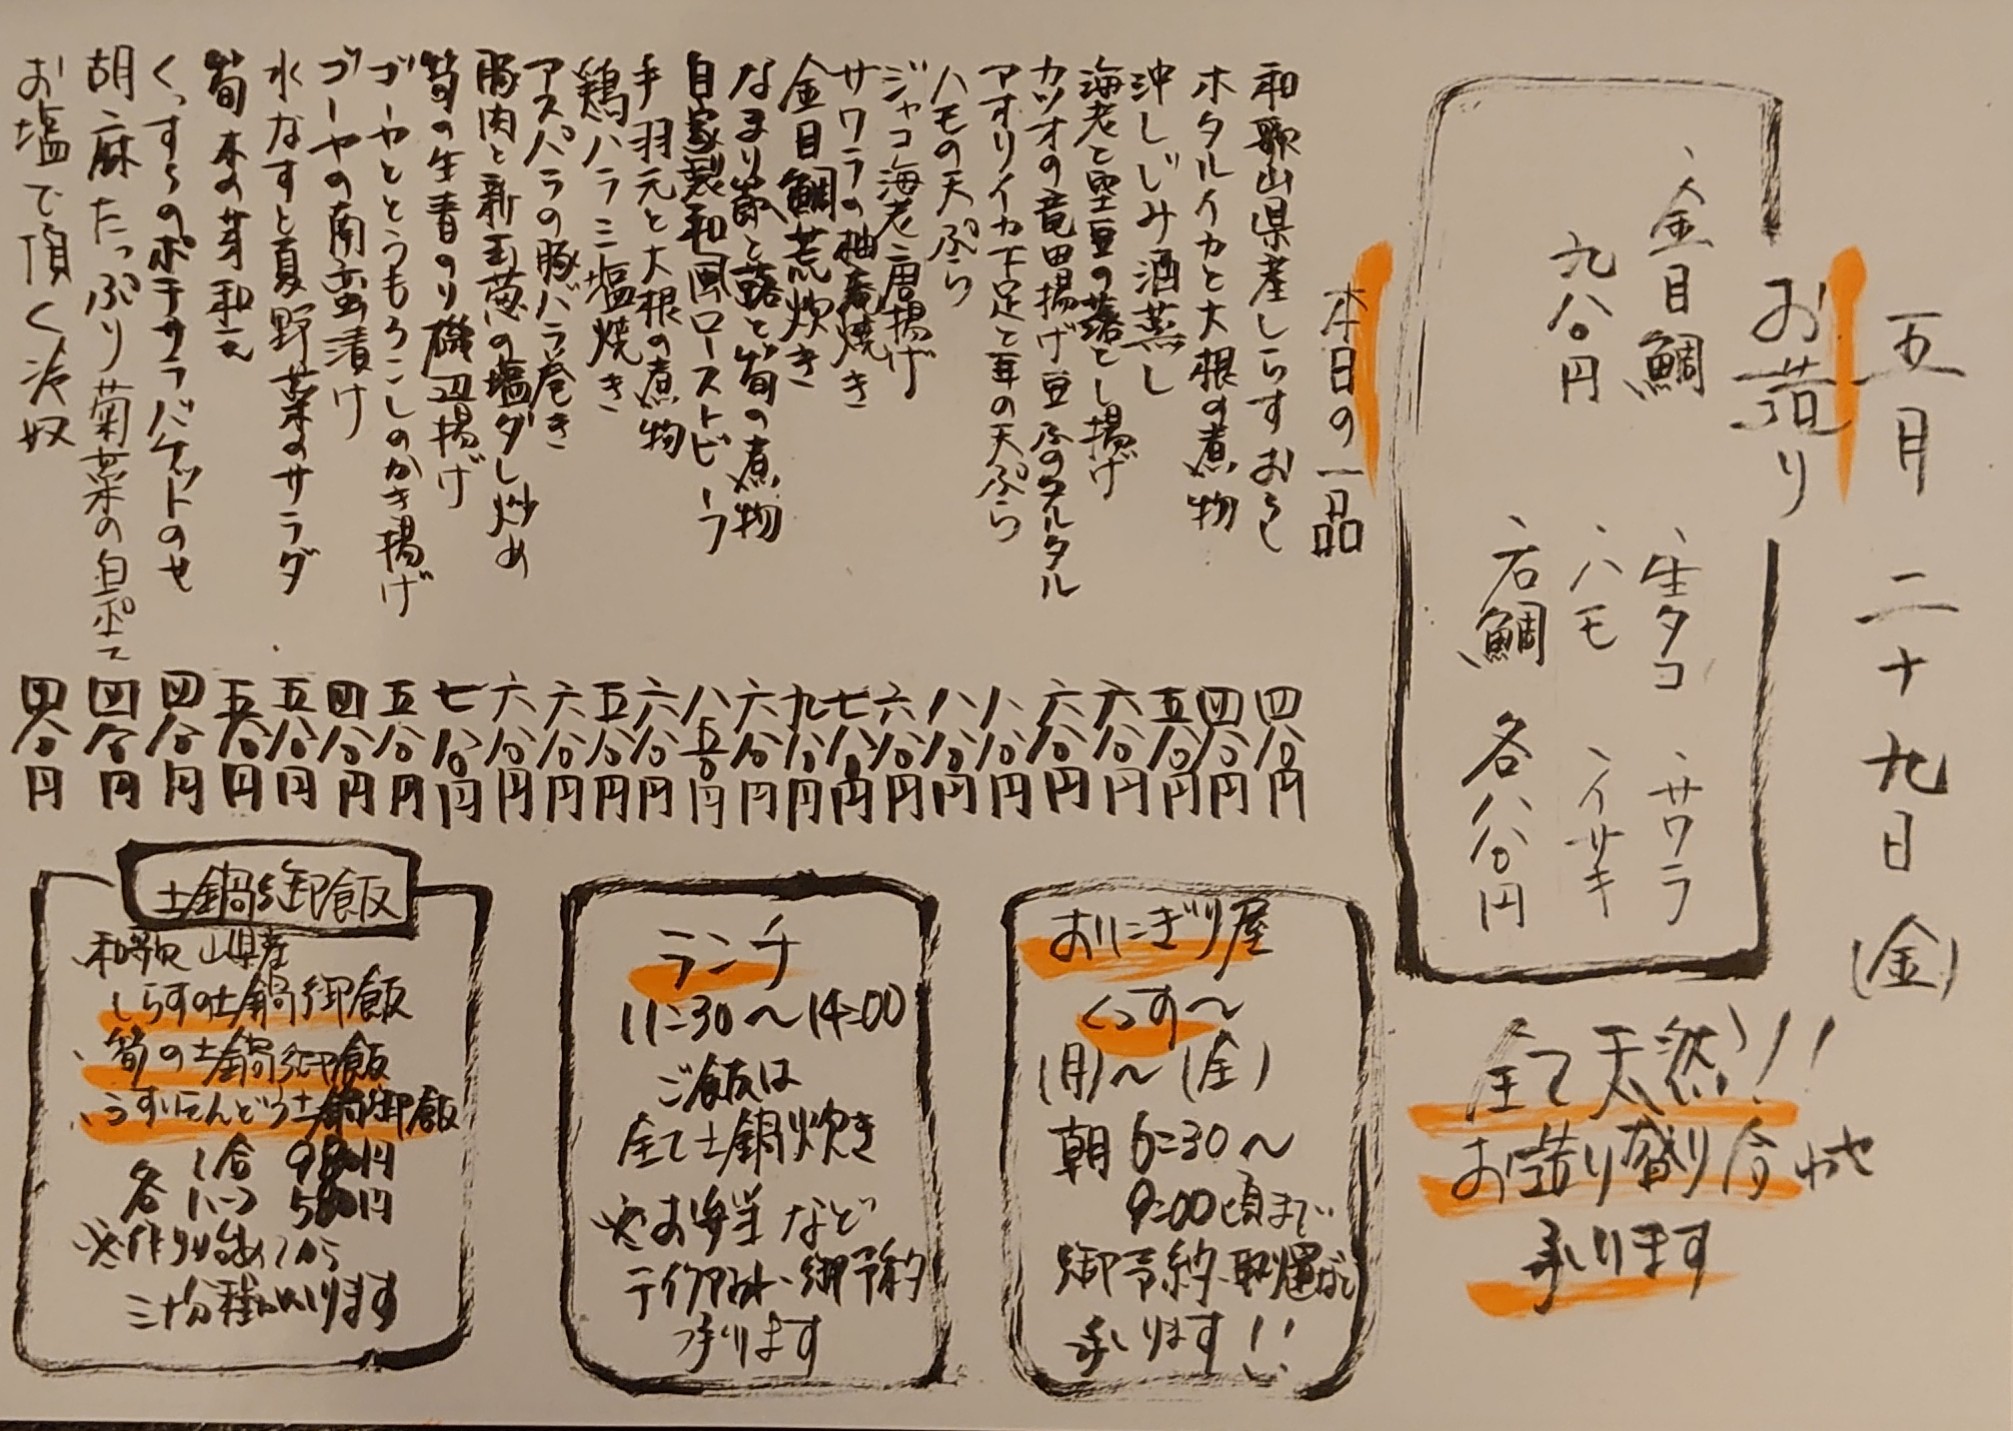 五月二十九日(金)
お造り
、金目鯛
九八〇円
、生タコ 、サワラ
、ハモ 、イサキ
、石鯛 各八八〇円
全て天然!!
お造り盛り合わせ
承ります
本日の一品
和歌山県産しらすおろし 四八〇円
ホタルイカと大根の煮物 四八〇円
沖しじみ酒蒸し 五八〇円
海老と空豆の落とし揚げ 六八〇円
カツオの竜田揚げ豆ふのタルタル 六八〇円
アオリイカ下足と耳の天ぷら 八八〇円
ハモの天ぷら 八八〇円
ジャコ海老唐揚げ 六八〇円
サワラの柚庵焼き 七八〇円
金目鯛荒炊き 九八〇円
なまり節と蕗と筍の煮物 六八〇円
自家製和風ローストビーフ 八五〇円
手羽元と大根の煮物 六八〇円
鶏ハラミ塩焼き 五八〇円
アスパラの豚バラ巻き 六八〇円
豚肉と新玉葱の塩ダレ炒め 六八〇円
筍の生青のり磯辺揚げ 七八〇円
ゴーヤととうもろこしのかき揚げ 五八〇円
ゴーヤの南蛮漬け 四八〇円
水なすと夏野菜のサラダ 五八〇円
筍木の芽和え 五八〇円
くっすらのポテサラバゲットのせ 四八〇円
胡麻たっぷり菊菜の白和え 四八〇円
お塩で頂く冷奴 四八〇円
おにぎり屋
くっす〜
(月)〜(金)
朝6:30〜
9:00頃まで
御予約、取置など
承ります!!
ランチ
11:30〜14:00
ご飯は
全て土鍋炊き
※お弁当など
テイクアウト、御予約
承ります
土鍋御飯
、和歌山県産
しらすの土鍋御飯
、筍の土鍋御飯
、うすいえんどう土鍋御飯
各 1合 980円
※作り始めてから
三十分程かかります